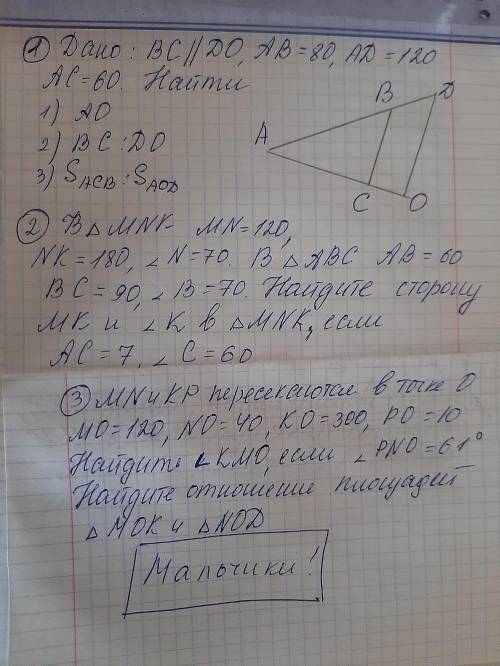 ① Дано: BC//DO, AB=80, AD=120
AC=60. Найти
1) AO
2) BC:DO
3) S_ACB : S_AOD
A
B
D
C
O
② В △ MNK MN=120,
NK=180, ∠N=70. В △ ABC AB=60
BC=90, ∠B=70. Найдите сторону
MK и ∠K в △MNK, если
AC=7, ∠C=60
③ MN и KP пересекаются в точке O
MO=120, NO=40, KO=300, PO=10
Найдите ∠KMO, если ∠PNO=61°
Найдите отношение площадей
△ MOK и △NOD
Мальчики!